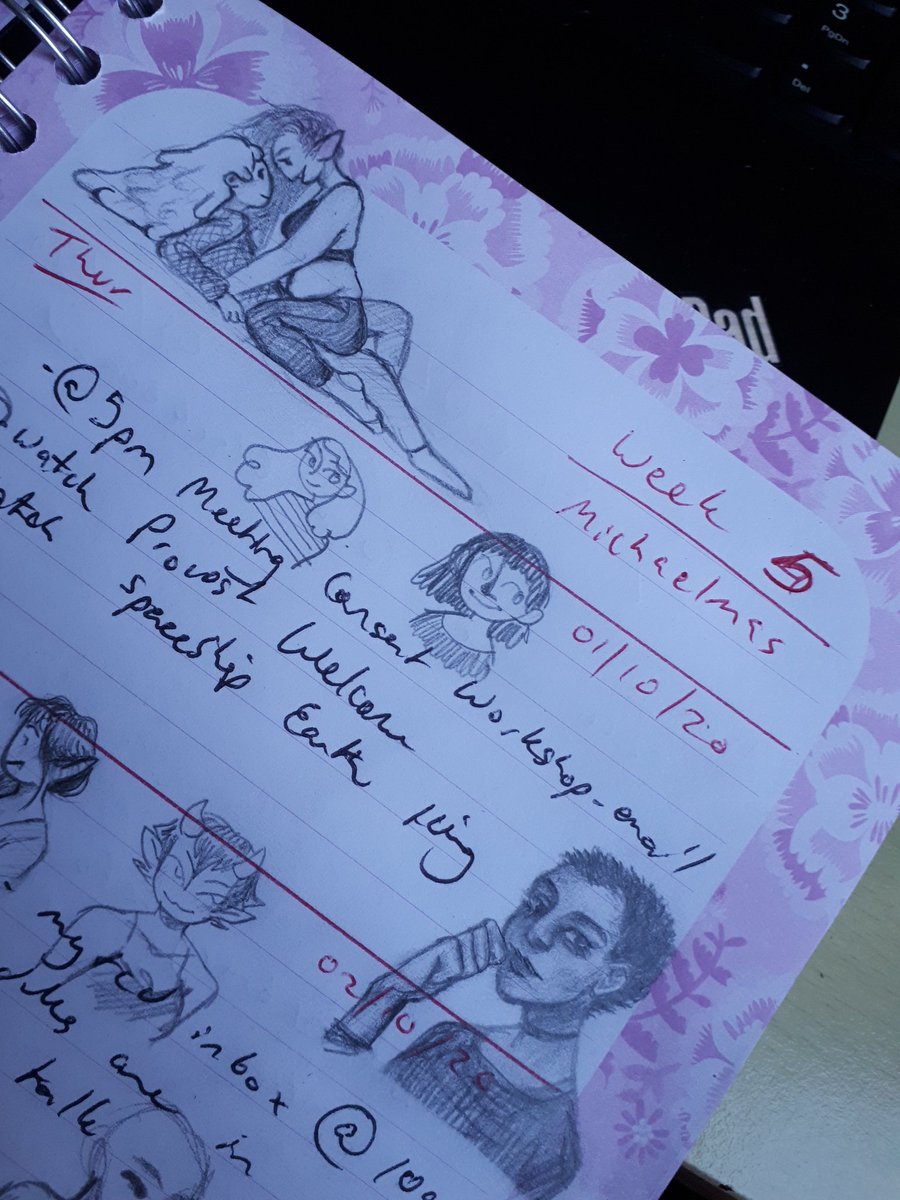 3
PgDn
.
Del
Pad
Week 5
Michaelmas
Thur
01/10/20
-@5pm Meeting Consent Workshop-email
watch Provost Welcome
spaceship Earth
02/10/20
my inbox @ 10
are in
talk